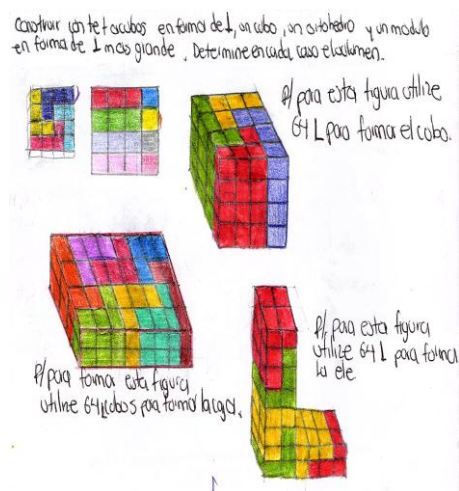 Construir con tetracubos en forma de L, un cubo, un ortohedro y un modulo
en forma de L mas grande. Determine en cada caso el volumen.
R/ para esta figura utilize
64 L para formar el cubo.
R/ para formar esta figura
utilize 64 L cubos para formar la caja.
R/ para esta figura
utilize 64 L para formar
la ele